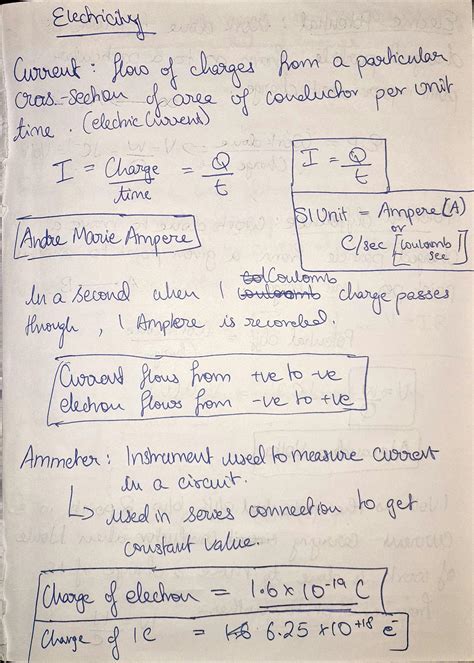 Electricity
Current : flow of charges from a particular
cross-section of area of conductor per unit
time . (electric current)
I = Charge/time = Q/t
I = Q/t
SI Unit = Ampere (A)
or
C/sec [Coulomb/sec]
Andre Marie Ampere
In a second when 1 Coulomb charge passes
through, 1 Ampere is recorded.
Current flows from +ve to -ve
electron flows from -ve to +ve
Ammeter : Instrument used to measure current
in a circuit.
↳ used in series connection to get
constant value.
Charge of electron = 1.6 x 10⁻¹⁹ C
Charge of 1C = 6.25 x10⁺¹⁸ e⁻